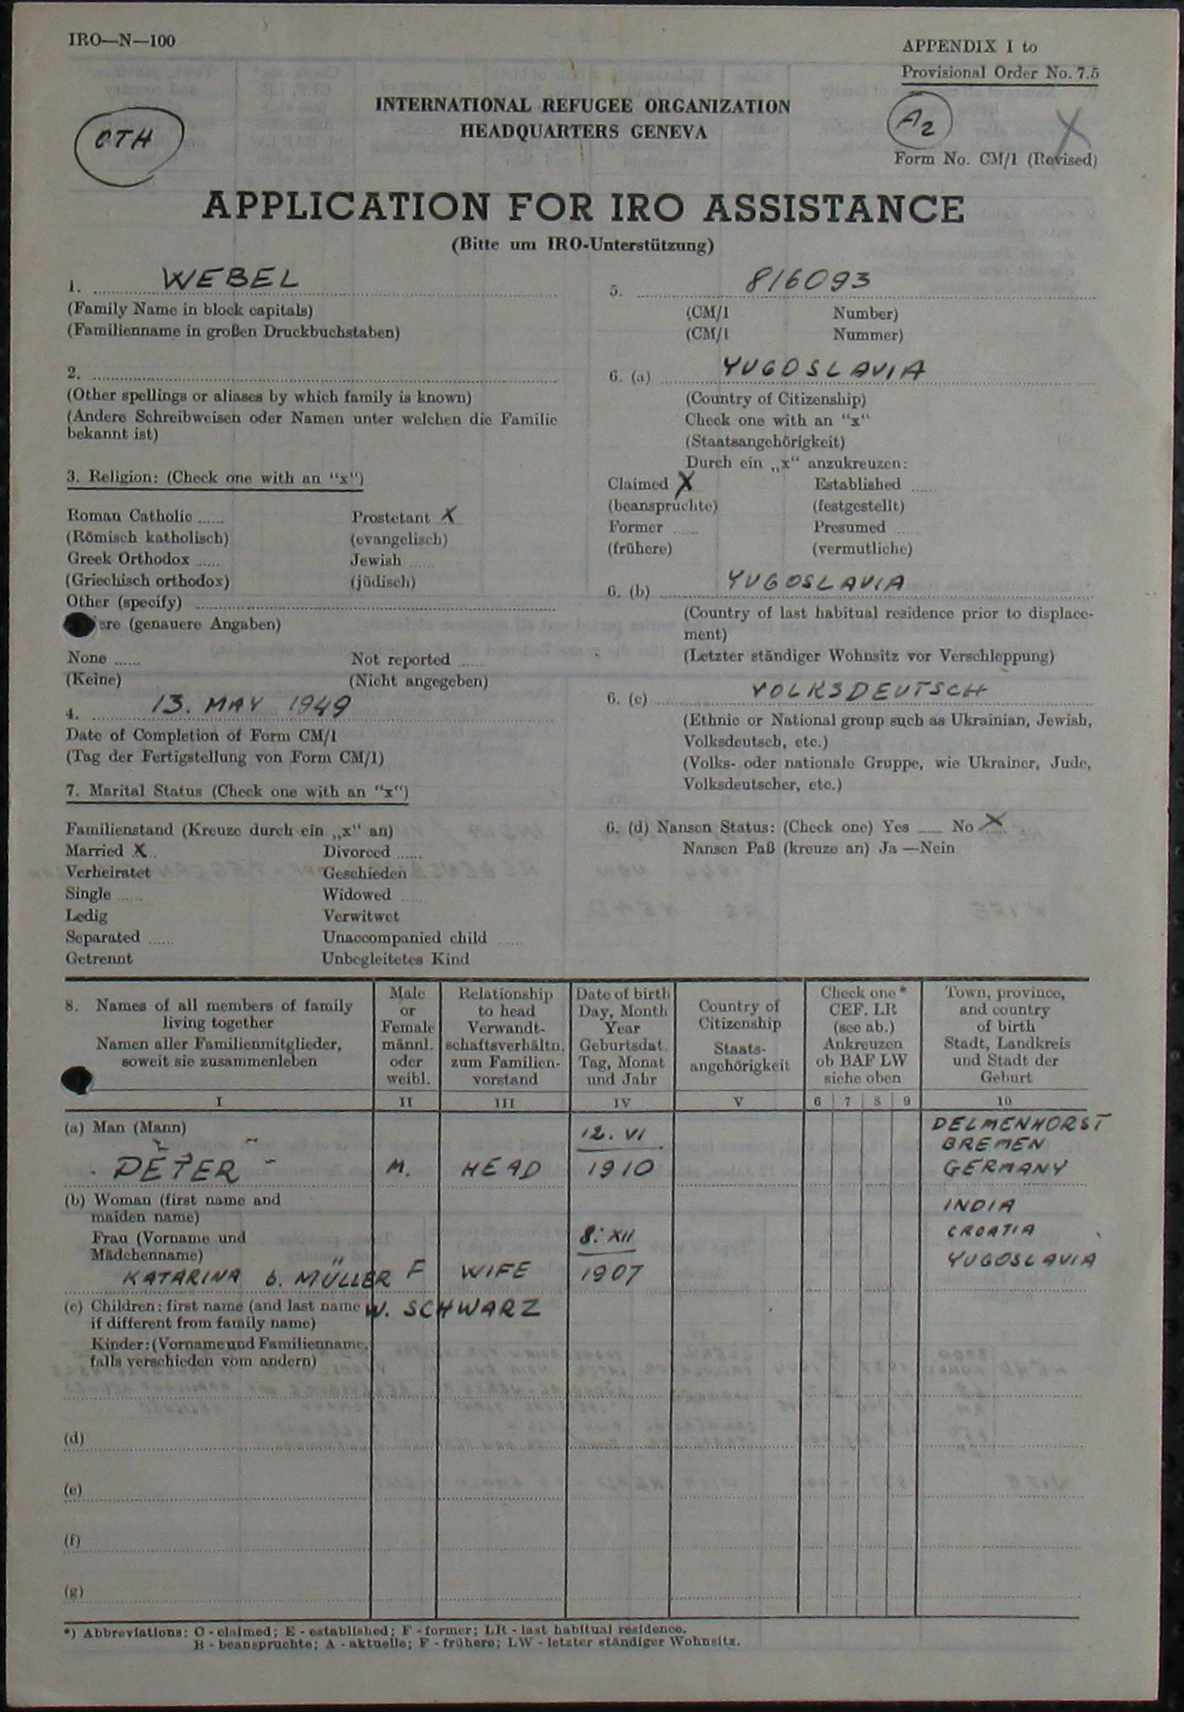 IRO—N—100
APPENDIX I to
Provisional Order No. 7.5
INTERNATIONAL REFUGEE ORGANIZATION
HEADQUARTERS GENEVA
OTH
A2
X
Form No. CM/1 (Revised)
APPLICATION FOR IRO ASSISTANCE
(Bitte um IRO-Unterstützung)
1. WEBEL
(Family Name in block capitals)
(Familienname in großen Druckbuchstaben)
2.
(Other spellings or aliases by which family is known)
(Andere Schreibweisen oder Namen unter welchen die Familie
bekannt ist)
3. Religion: (Check one with an "x")
Roman Catholic ...... Prostetant X
(Römisch katholisch) (evangelisch)
Greek Orthodox ..... Jewish ......
(Griechisch orthodox) (jüdisch)
Other (specify)
ere (genauere Angaben)
None ...... Not reported ......
(Keine) (Nicht angegeben)
4. 13. MAY 1949
Date of Completion of Form CM/1
(Tag der Fertigstellung von Form CM/1)
7. Marital Status (Check one with an "x")
Familienstand (Kreuze durch ein „x" an)
Married X Divorced ......
Verheiratet Geschieden
Single ...... Widowed ......
Ledig Verwitwet
Separated ...... Unaccompanied child ......
Getrennt Unbegleitetes Kind
5. 816093
(CM/1 Number)
(CM/1 Nummer)
6. (a) YUGOSLAVIA
(Country of Citizenship)
Check one with an "x"
(Staatsangehörigkeit)
Durch ein „x" anzukreuzen:
Claimed X Established ......
(beanspruchte) (festgestellt)
Former ...... Presumed ......
(frühere) (vermutliche)
6. (b) YUGOSLAVIA
(Country of last habitual residence prior to displace-
ment)
(Letzter ständiger Wohnsitz vor Verschleppung)
6. (c) VOLKSDEUTSCH
(Ethnic or National group such as Ukrainian, Jewish,
Volksdeutsch, etc.)
(Volks- oder nationale Gruppe, wie Ukrainer, Jude,
Volksdeutscher, etc.)
6. (d) Nansen Status: (Check one) Yes ...... No X
Nansen Paß (kreuze an) Ja —Nein
8. Names of all members of family
living together
Namen aller Familienmitglieder,
soweit sie zusammenleben
Male
or
Female
männl.
oder
weibl.
Relationship
to head
Verwandt-
schaftsverhältn.
zum Familien-
vorstand
Date of birth
Day, Month
Year
Geburtsdat.
Tag, Monat
und Jahr
Country of
Citizenship
Staats-
angehörigkeit
Check one *
CEF. LR
(see ab.)
Ankreuzen
ob BAF LW
siehe oben
Town, province,
and country
of birth
Stadt, Landkreis
und Stadt der
Geburt
I II III IV V 6 7 8 9 10
(a) Man (Mann)
PETER M. HEAD 12. VI 1910
DELMENHORST
BREMEN
GERMANY
(b) Woman (first name and
maiden name)
Frau (Vorname und
Mädchenname)
KATARINA b. MÜLLER F WIFE 8. XII 1907
INDIA
CROATIA
YUGOSLAVIA
(c) Children: first name (and last name
if different from family name)
W. SCHWARZ
Kinder: (Vorname und Familienname,
falls verschieden vom andern)
(d)
(e)
(f)
(g)
*) Abbreviations: C - claimed; E - established; F - former; LR - last habitual residence.
B - beanspruchte; A - aktuelle; F - frühere; LW - letzter ständiger Wohnsitz.